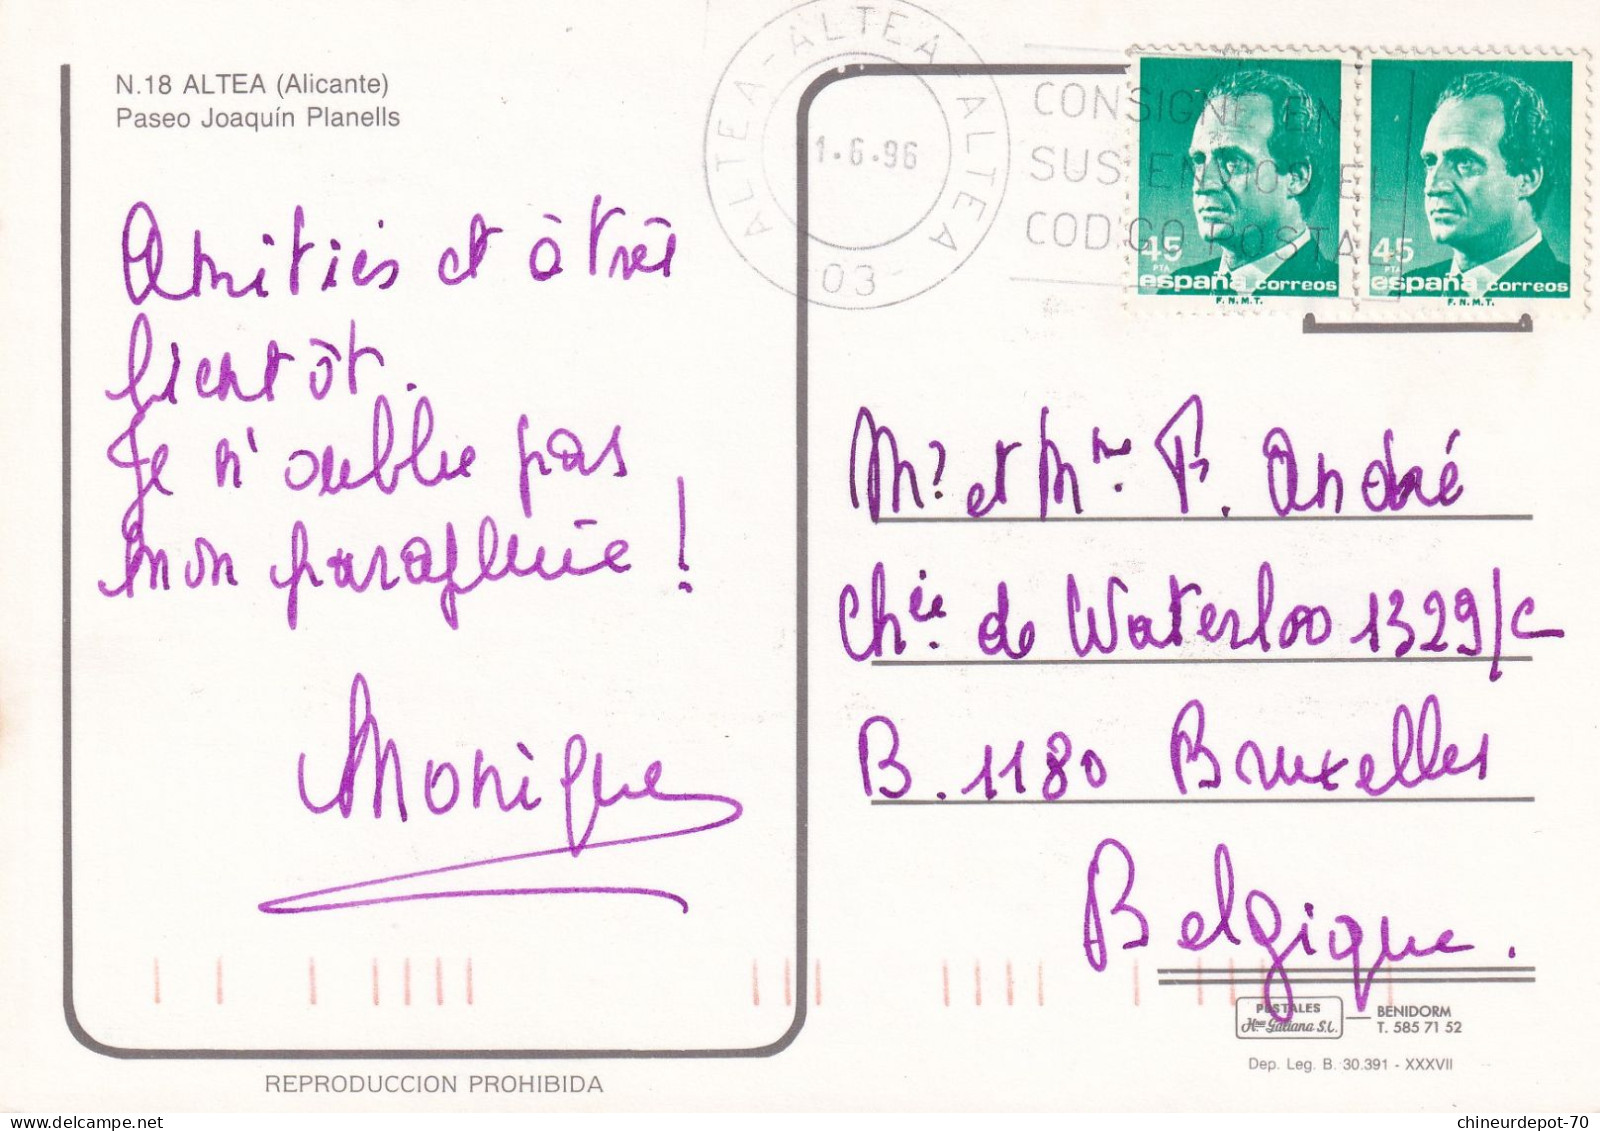 N.18 ALTEA (Alicante)
Paseo Joaquín Planells
Amitiés et à très
bientôt.
Je n'oublie pas
mon parapluie !
Monique
REPRODUCCION PROHIBIDA
ALTEA-ALTEA-ALTEA-ALTEA
1·6·96
03
CONSIGNE EN
SUS ENVIOS EL
CODIGO POSTAL
45
PTA
españa correos
F.N.M.T.
45
PTA
españa correos
F.N.M.T.
Mr et Mme F. André
Chée de Waterloo 1329/c
B. 1180 Bruxelles
Belgique.
POSTALES
Hnos Galiana S.L.
BENIDORM
T. 585 71 52
Dep. Leg. B. 30.391 - XXXVII
chineurdepot-70